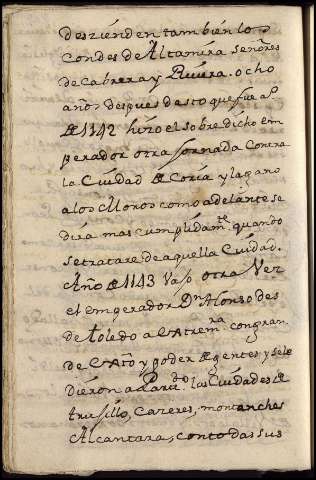 desziénden tambien los
Condes de Altamira señores
de Cabrera y Rivera. ocho
años despues desto que fue aº
de 1142 hizo el sobre dicho em
perador otra Jornada Contra
la Ciudad de Coria y la gano
a los Moros como adelante se
dira mas cumplidamte quando
se tratare de aquella Cuidad.
Año de 1143 vajo otra Vez
el emperador Dn Alonso des
de toledo a extremra con gran
de y poder de gentes y sele
diéron a Partdo las Ciudades de
trujillo, Cazeres, montanches
Alcantara, con todas sus